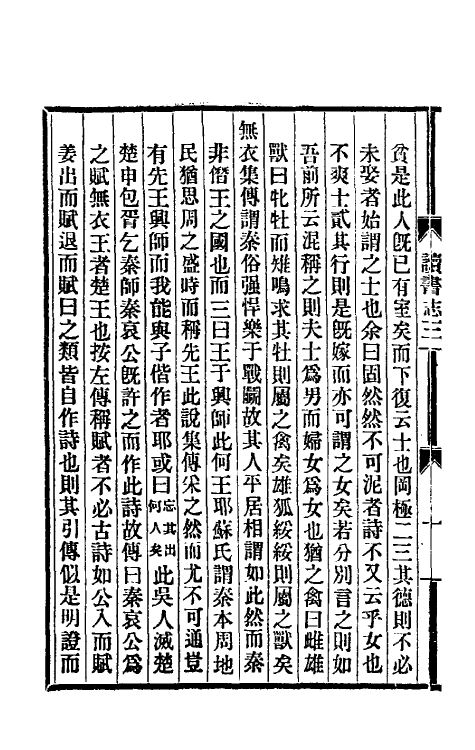 貧是此人旣已有室矣而下復云士也罔極二三其德則不必
未娶者始謂之士也余曰固然然不可泥者詩不又云乎女也
不爽士貳其行則是旣嫁而亦可謂之女矣若分別言之則如
吾前所云混稱之則夫士為男而婦女為女也猶之禽曰雌雄
獸曰牝牡而雉鳴求其牡則屬之禽矣雄狐綏綏則屬之獸矣
無衣集傳謂秦俗强悍樂于戰鬭故其人平居相謂如此然而秦
非僭王之國也而三曰王于興師此何王耶蘇氏謂秦本周地
民猶思周之盛時而稱先王此說集傳采之然而尤不可通豈
有先王興師而我能與子偕作者耶或曰忘其出何人矣此吳人滅楚
楚申包胥乞秦師秦哀公旣許之而作此詩故傳曰秦哀公爲
之賦無衣王者楚王也按左傳稱賦者不必古詩如公入而賦
姜出而賦退而賦曰之類皆自作詩也則其引傳似是明證而
讀書志三
十